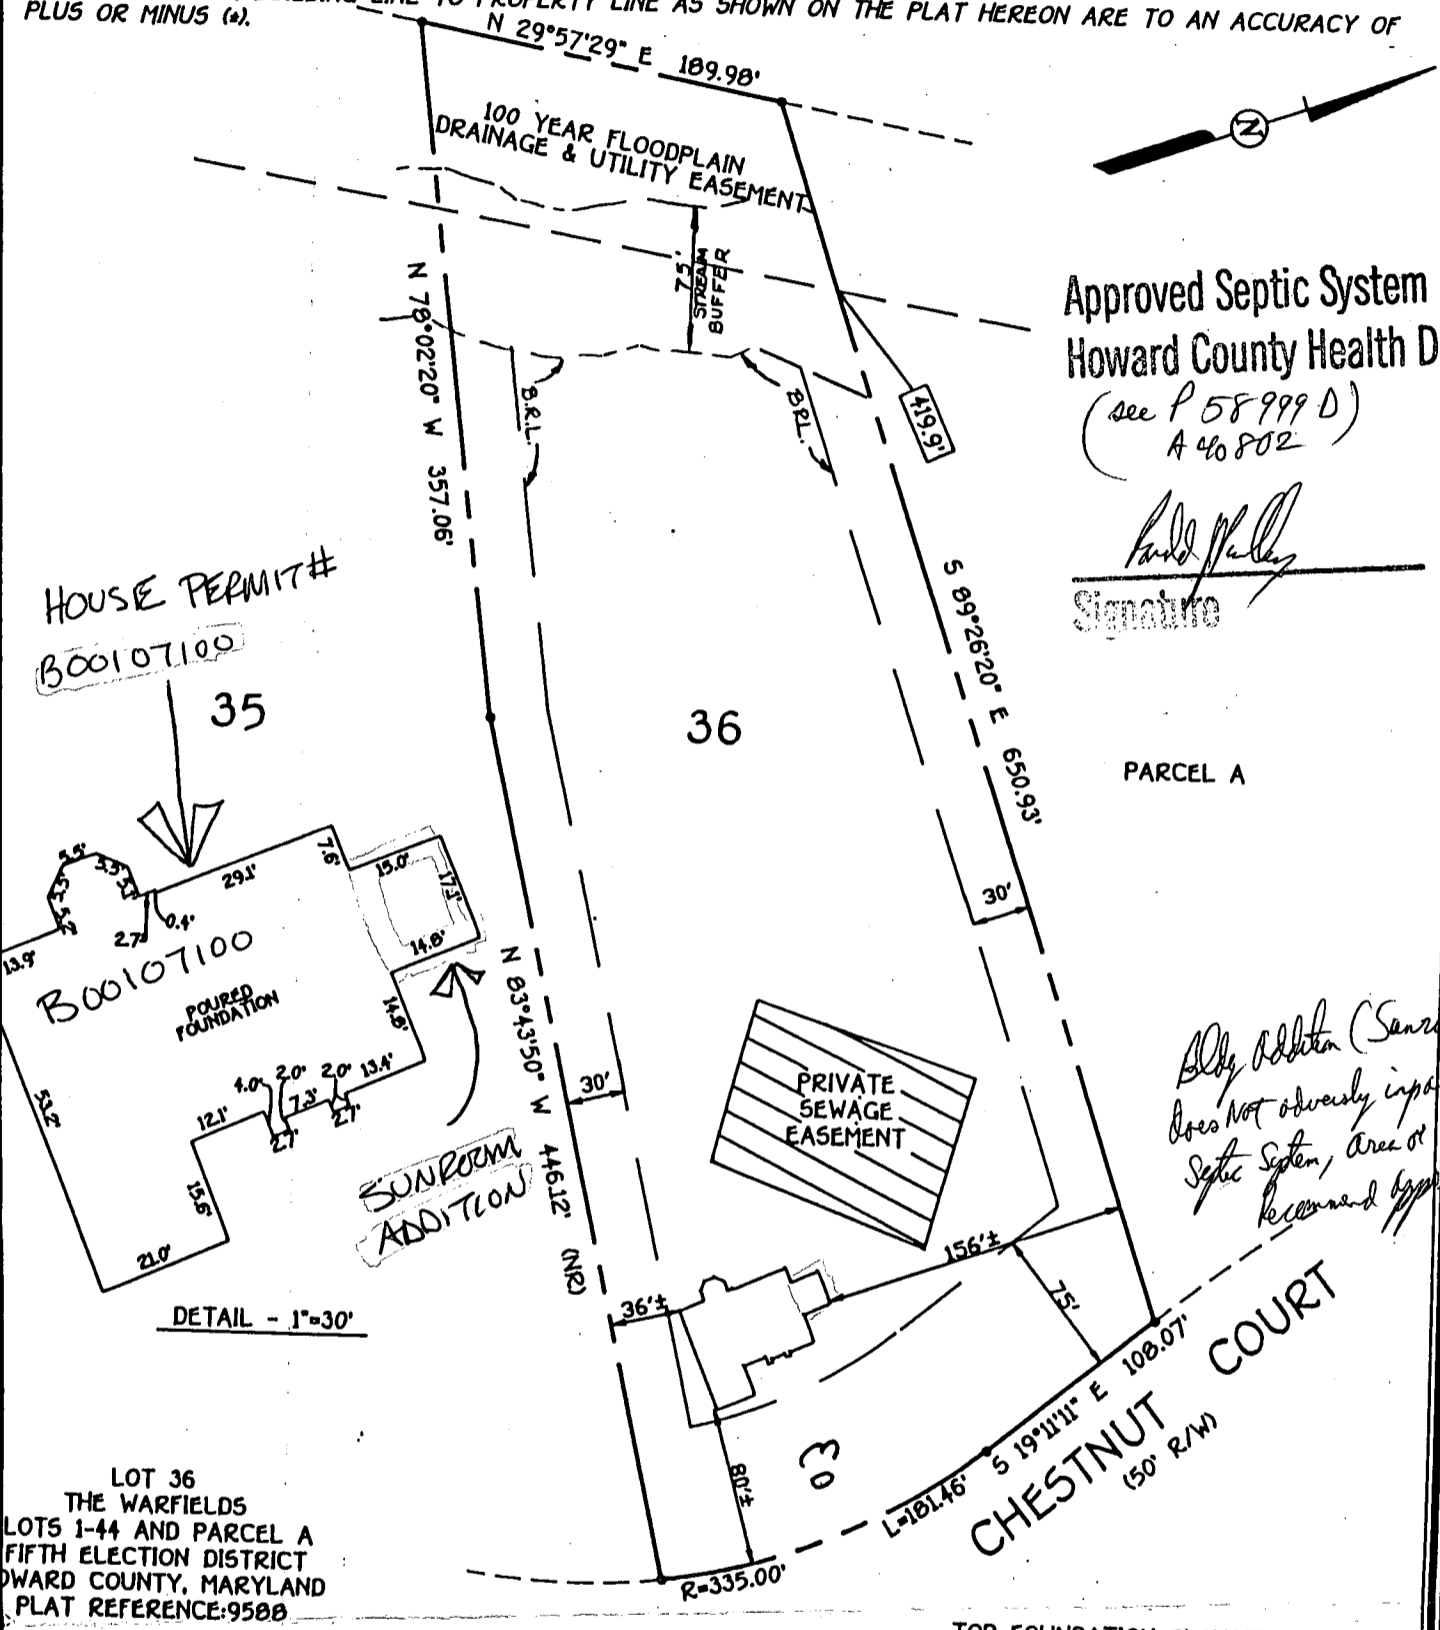 LINE TO PROPERTY LINE AS SHOWN ON THE PLAT HEREON ARE TO AN ACCURACY OF
PLUS OR MINUS (±).
N 29°57'29" E 189.98'
100 YEAR FLOODPLAIN
DRAINAGE & UTILITY EASEMENT
N
75'
STREAM
BUFFER
Approved Septic System
Howard County Health D
(see P 58999 D)
A 40802
Signature
N 78°02'20" W 357.06'
B.R.L.
B.R.L.
419.9'
S 89°26'20" E 650.93'
HOUSE PERMIT#
B00107100
35
36
PARCEL A
5.5'
5.5'
5.5'
5.1'
5.2'
29.1'
7.6'
15.0'
17.1'
14.8'
2.7'
0.4'
13.9'
B00107100
POURED
FOUNDATION
14.8'
4.0'
2.0'
2.0'
13.4'
12.1'
7.3'
2.7'
2.7'
53.2'
15.6'
21.0'
SUNROOM
ADDITION
DETAIL - 1"=30'
N 83°43'50" W 446.12' (NR)
30'
30'
PRIVATE
SEWAGE
EASEMENT
Bldg Addition (Sunr
does Not adversly impa
Septic System, Area or
Recommend app
156'±
36'±
75'
80'±
03
S 19°11'11" E 108.07'
L=181.46'
R=335.00'
CHESTNUT COURT
(50' R/W)
LOT 36
THE WARFIELDS
LOTS 1-44 AND PARCEL A
FIFTH ELECTION DISTRICT
OWARD COUNTY, MARYLAND
PLAT REFERENCE:9588
TOP FOUNDATION